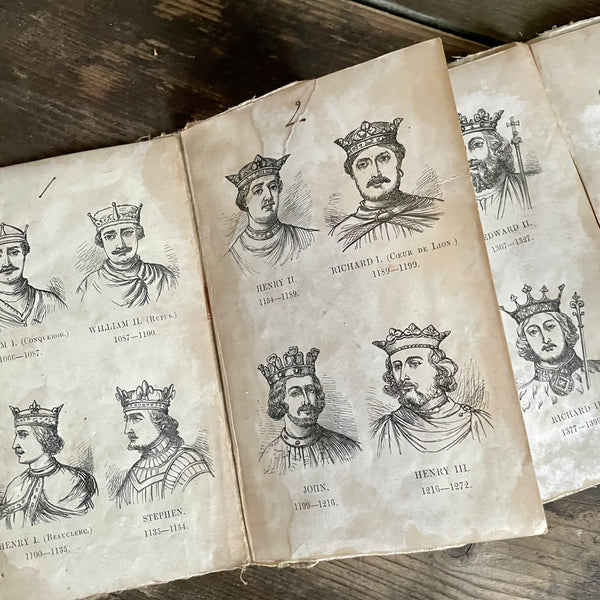 1
M I. (Conqueror.)
1066—1087.
WILLIAM II. (Rufus.)
1087—1100.
HENRY I. (Beauclerc.)
1100—1135.
STEPHEN.
1135—1154.
2.
HENRY II.
1154—1189.
RICHARD I. (Cœur de Lion.)
1189—1199.
JOHN.
1199—1216.
HENRY III.
1216—1272.
EDWARD II.
1307—1327.
RICHARD II
1377—1399